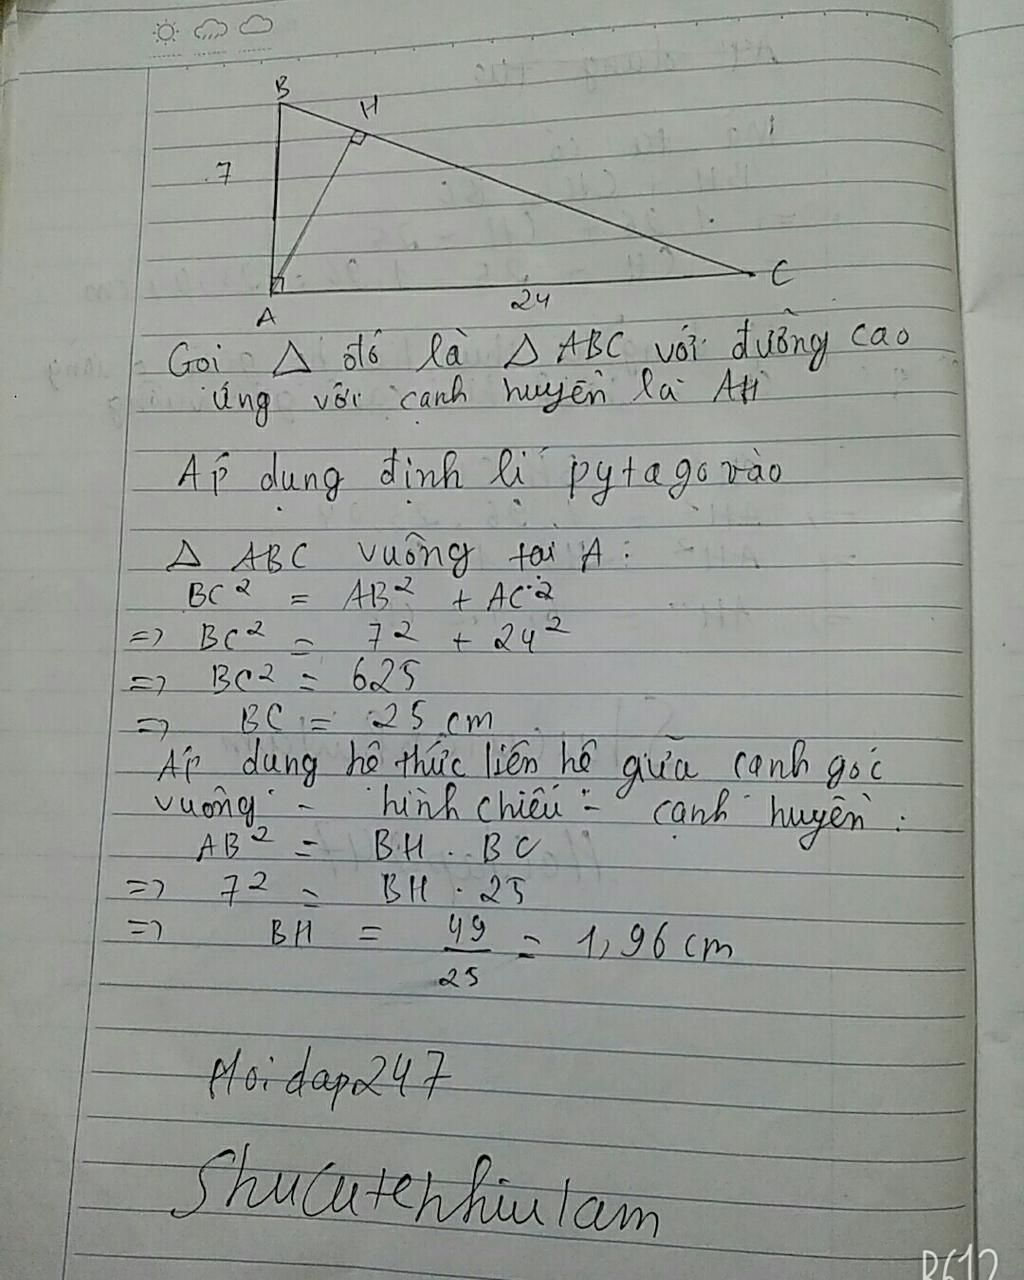 B
H
7
A
24
C
Gọi Δ đó là Δ ABC với đường cao
ứng với cạnh huyền là AH
Áp dụng định lí pytago vào
Δ ABC vuông tại A :
BC² = AB² + AC²
=> BC² = 7² + 24²
=> BC² = 625
=> BC = 25 cm
Áp dụng hệ thức liên hệ giữa cạnh góc
vuông - hình chiếu - cạnh huyền :
AB² = BH . BC
=> 7² = BH . 25
=> BH = 49/25 = 1,96 cm
Hoidap247
Shucutenhiulam
B612